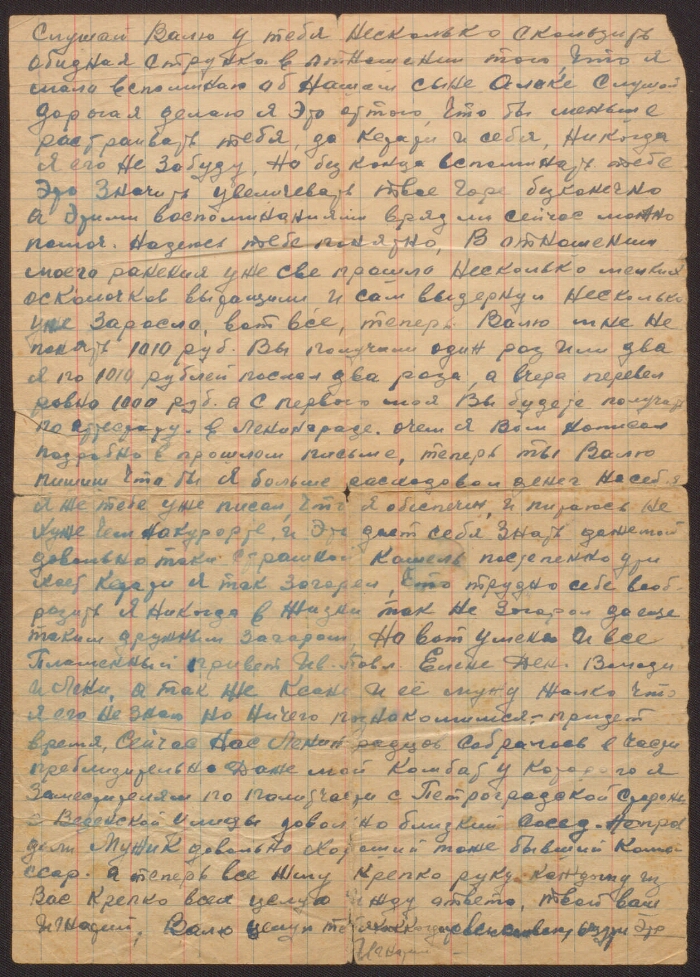 Слушай Валю у тебя несколько скользит
обидная струнка в отношении того, что я
мало вспоминаю об нашем сыне Алике Слушай
дорогая делаю я это оттого, что бы меньше
растраивать тебя, да кстати и себя, никогда
я его не забуду, но без конца вспоминать тебе
это значить увеличевать твое горе безконечно
а этими воспоминаниями вряд ли сейчас можно
помоч. Надеюсь тебе понятно, В отношении
моего ранения уже све прошло несколько мелких
осколочков вытащили и сам выдернул несколько
уже заросло, вот всё, теперь Валю мне не
понять 1010 руб. Вы получили один раз или два
я по 1010 рублей послал два раза, а вчера перевел
ровно 1000 руб. а с первого мая Вы будете получать
по в Ленинграде. очем я Вам написал
подробно в прошлом письме, теперь ты Валю
пишиш что бы я больше расходовал денег на себя
я же тебе уже писал, что я обеспечен, и питаюсь не
хуже чем накурорте, и это дает себя знать
довольно таки страшной кашель постепенно ути
хает кстати я так загорел, что трудно себе вооб-
разить я никогда в жизни так не загорал да еще
таким дружным загаром, Но вот у меня и все
Пламенный привет Ив. Павл. Елене Ден. Володи
и Лени, а так же Ксане и её мужу жалко что
я его не знаю но ничего познакомимся, придет
время, Сейчас нас Ленинградцов собралось в части
преблизительно Даже мой Комбат у которого я
Заместителям по политчасти с Петроградской Стороны
с Веденской улицы довольно близкий сосед.
мужик довольно хороший тоже бывший Коми
ссар. а теперь все жму крепко руку каждому из
Вас Крепко всех целую жду ответа, твой ваш
Игнадий, Валю целую